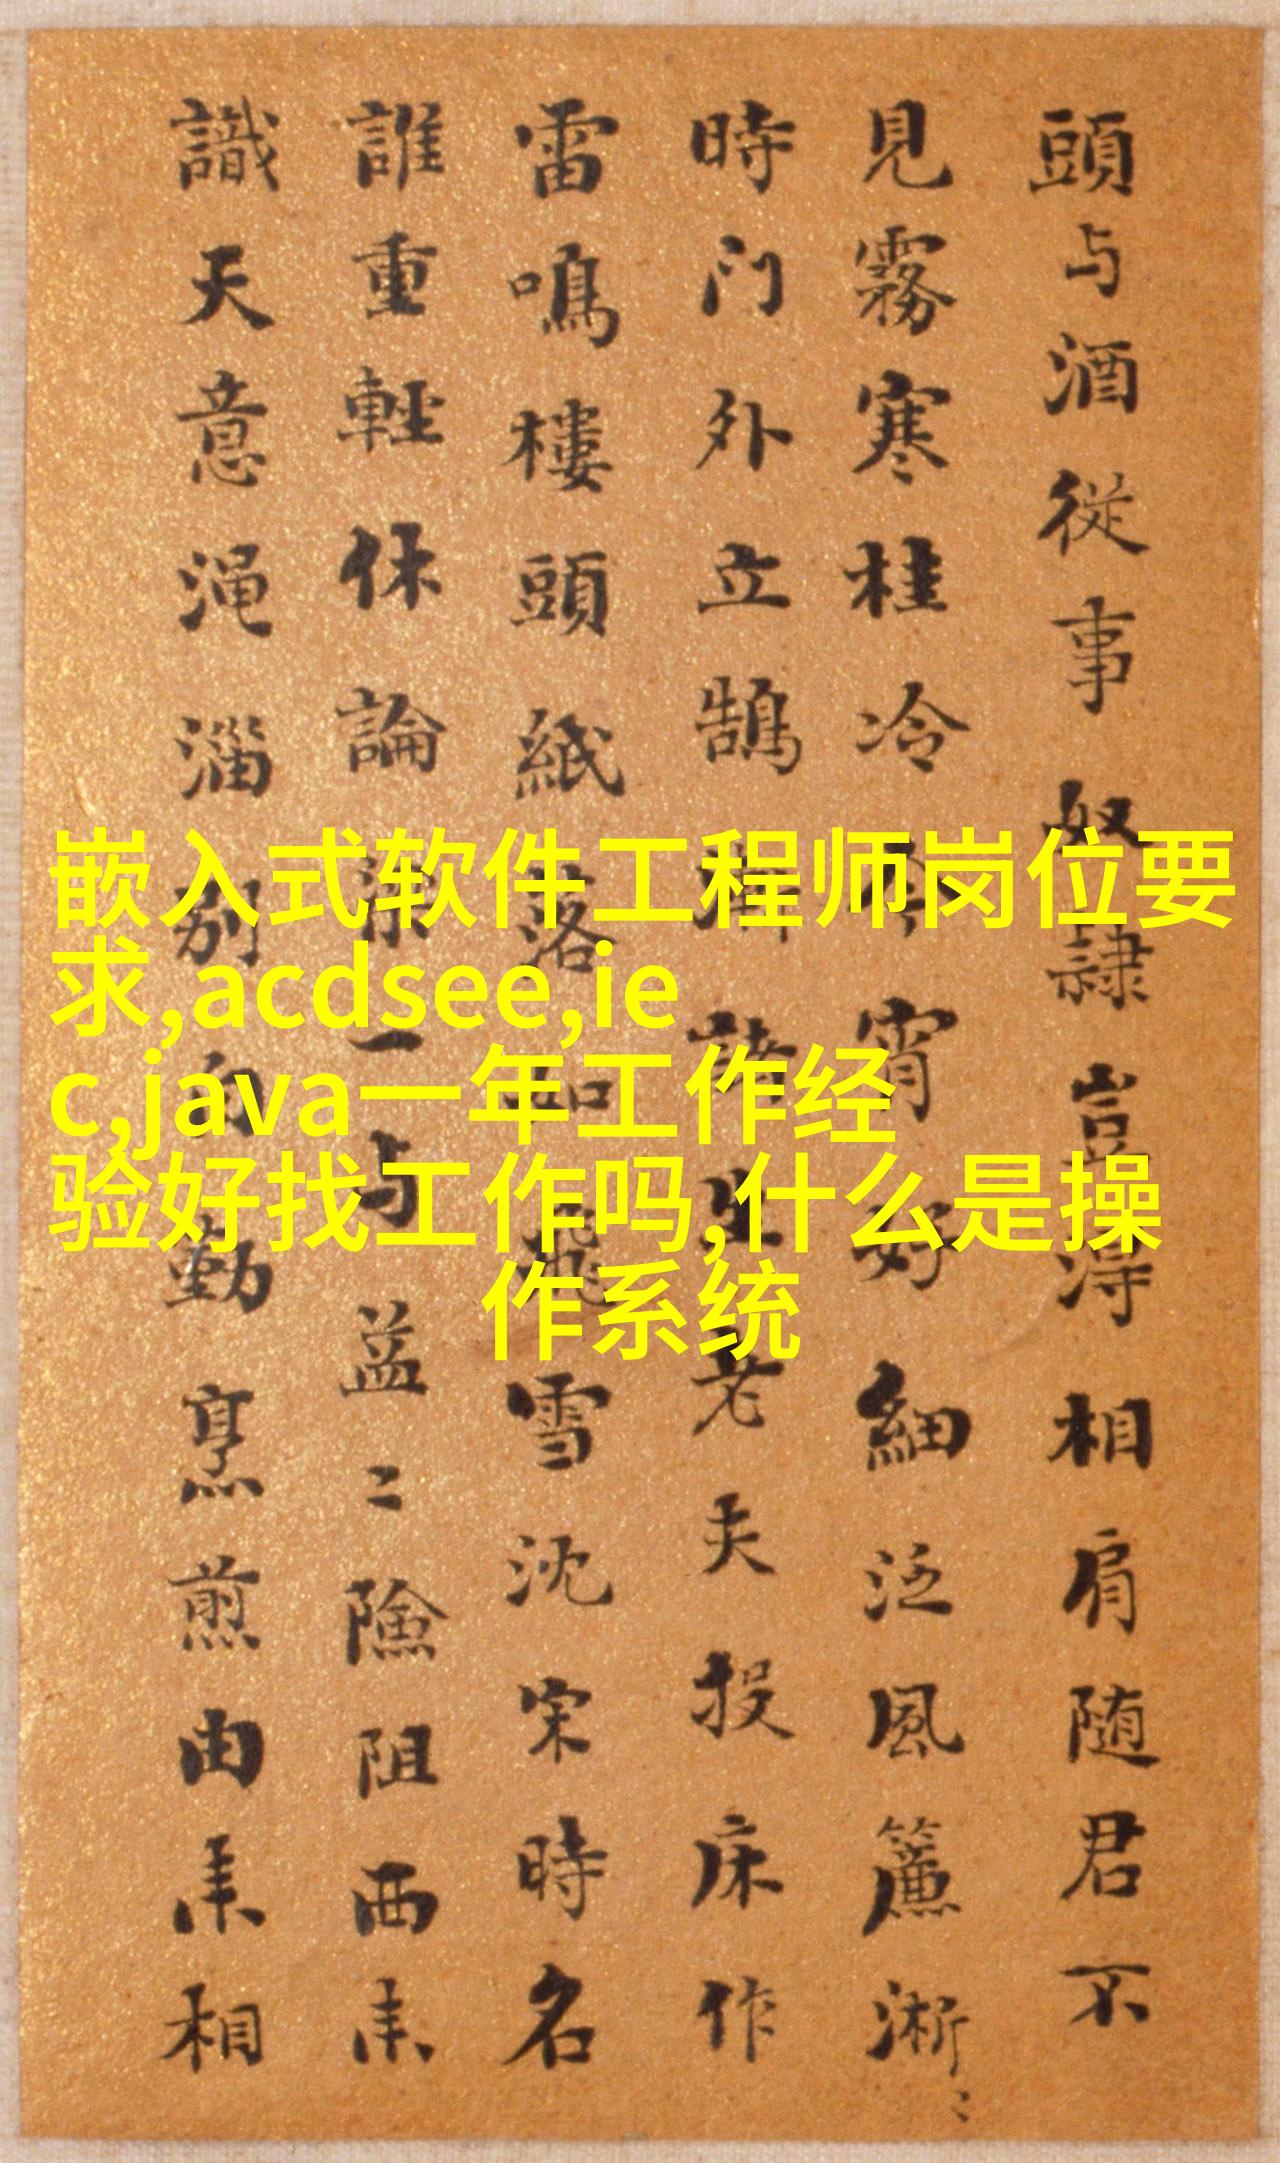 嵌入式软件工程师岗位要
求,acdsee,ie
c,java一年工作经
验好找工作吗,什么是操
作系统
頭与酒從事奴隷豈得相肩随君不
見霧寒桂冷宵好細泛風簾淅〻
時门外立鵠諸生老夫投床作
雷鳴樓頭紙落如飛雪沈宋時名
誰重輕休論添一与益二險阻西来
識天意澠淄别自動烹煎由来相